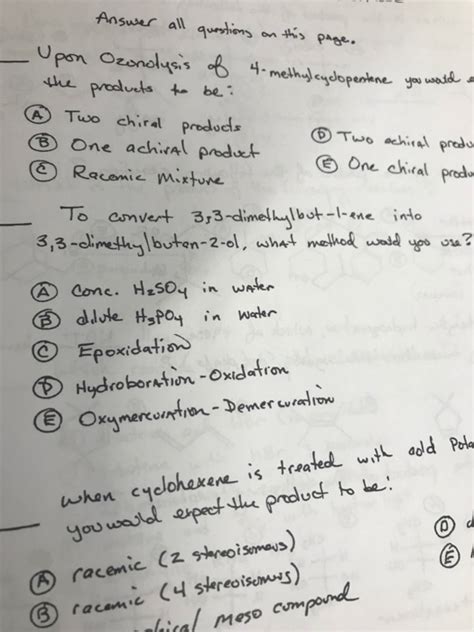 Answer all questions on this page.
Upon Ozonolysis of 4-methylcyclopentene you would
the products to be:
(A) Two chiral products
(B) One achiral product
(C) Racemic Mixture
(D) Two achiral produ
(E) One chiral produ
To convert 3,3-dimethylbut-1-ene into
3,3-dimethylbutan-2-ol, what method would you use?
(A) Conc. H2SO4 in water
(B) dilute H3PO4 in water
(C) Epoxidation
(D) Hydroboration-Oxidation
(E) Oxymercuration-Demercuration
When cyclohexene is treated with cold Pota
you would expect the product to be:
(A) racemic (2 stereoisomers)
(B) racemic (4 stereoisomers)
meso compound
(D)
(E)